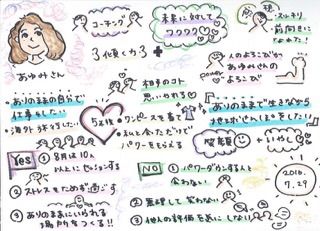 コーチング
未来に対して
ワクワク
スッキリ
前向きに
なれた!
3
傾く力
あゆみさん
人のよろこびが
あゆみさんの
よろこび
power
相手のコト
思いやれる
ありのままの自分で
仕事したい
海外も手伝いしたい
5年後
ワンピースを着て
私と会ってだけで
パワーをもらえる
ありのままで生きながら
地球にせいいっぱいをしたい
笑顔
いやし
Yes
① 8月は10人
以上にセッションする
② ストレスをためず過ごす
③ ありのままにいられる
場所をつくる!!
No
① パワーダウンする人と
会わない
② 無理して笑わない
③ 他人の評価を気にしない
2016.
7.29